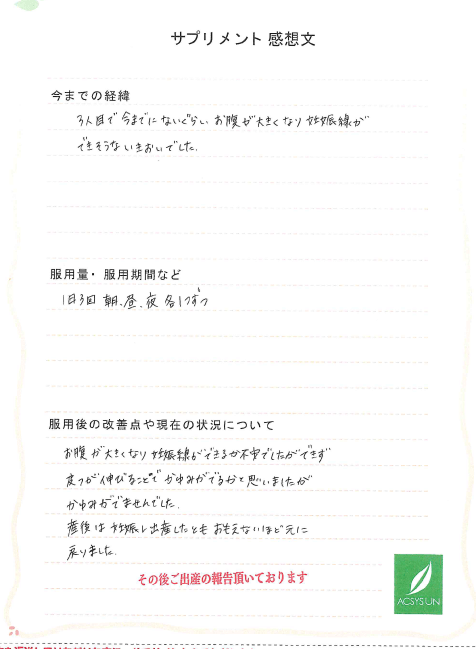 サプリメント 感想文
今までの経緯
3人目で今までにないぐらい お腹が大きくなり 妊娠線が
できそうないきおいでした.
服用量・服用期間など
1日3回 朝、昼、夜 各1つずつ
服用後の改善点や現在の状況について
お腹が大きくなり 妊娠線ができるか不安でしたができず
皮フが伸びることで かゆみがでるかと思いましたが
かゆみがでませんでした.
産後は 妊娠し出産したとも おもえないほど元に
戻りました.
その後ご出産の報告頂いております
ACSYSUN